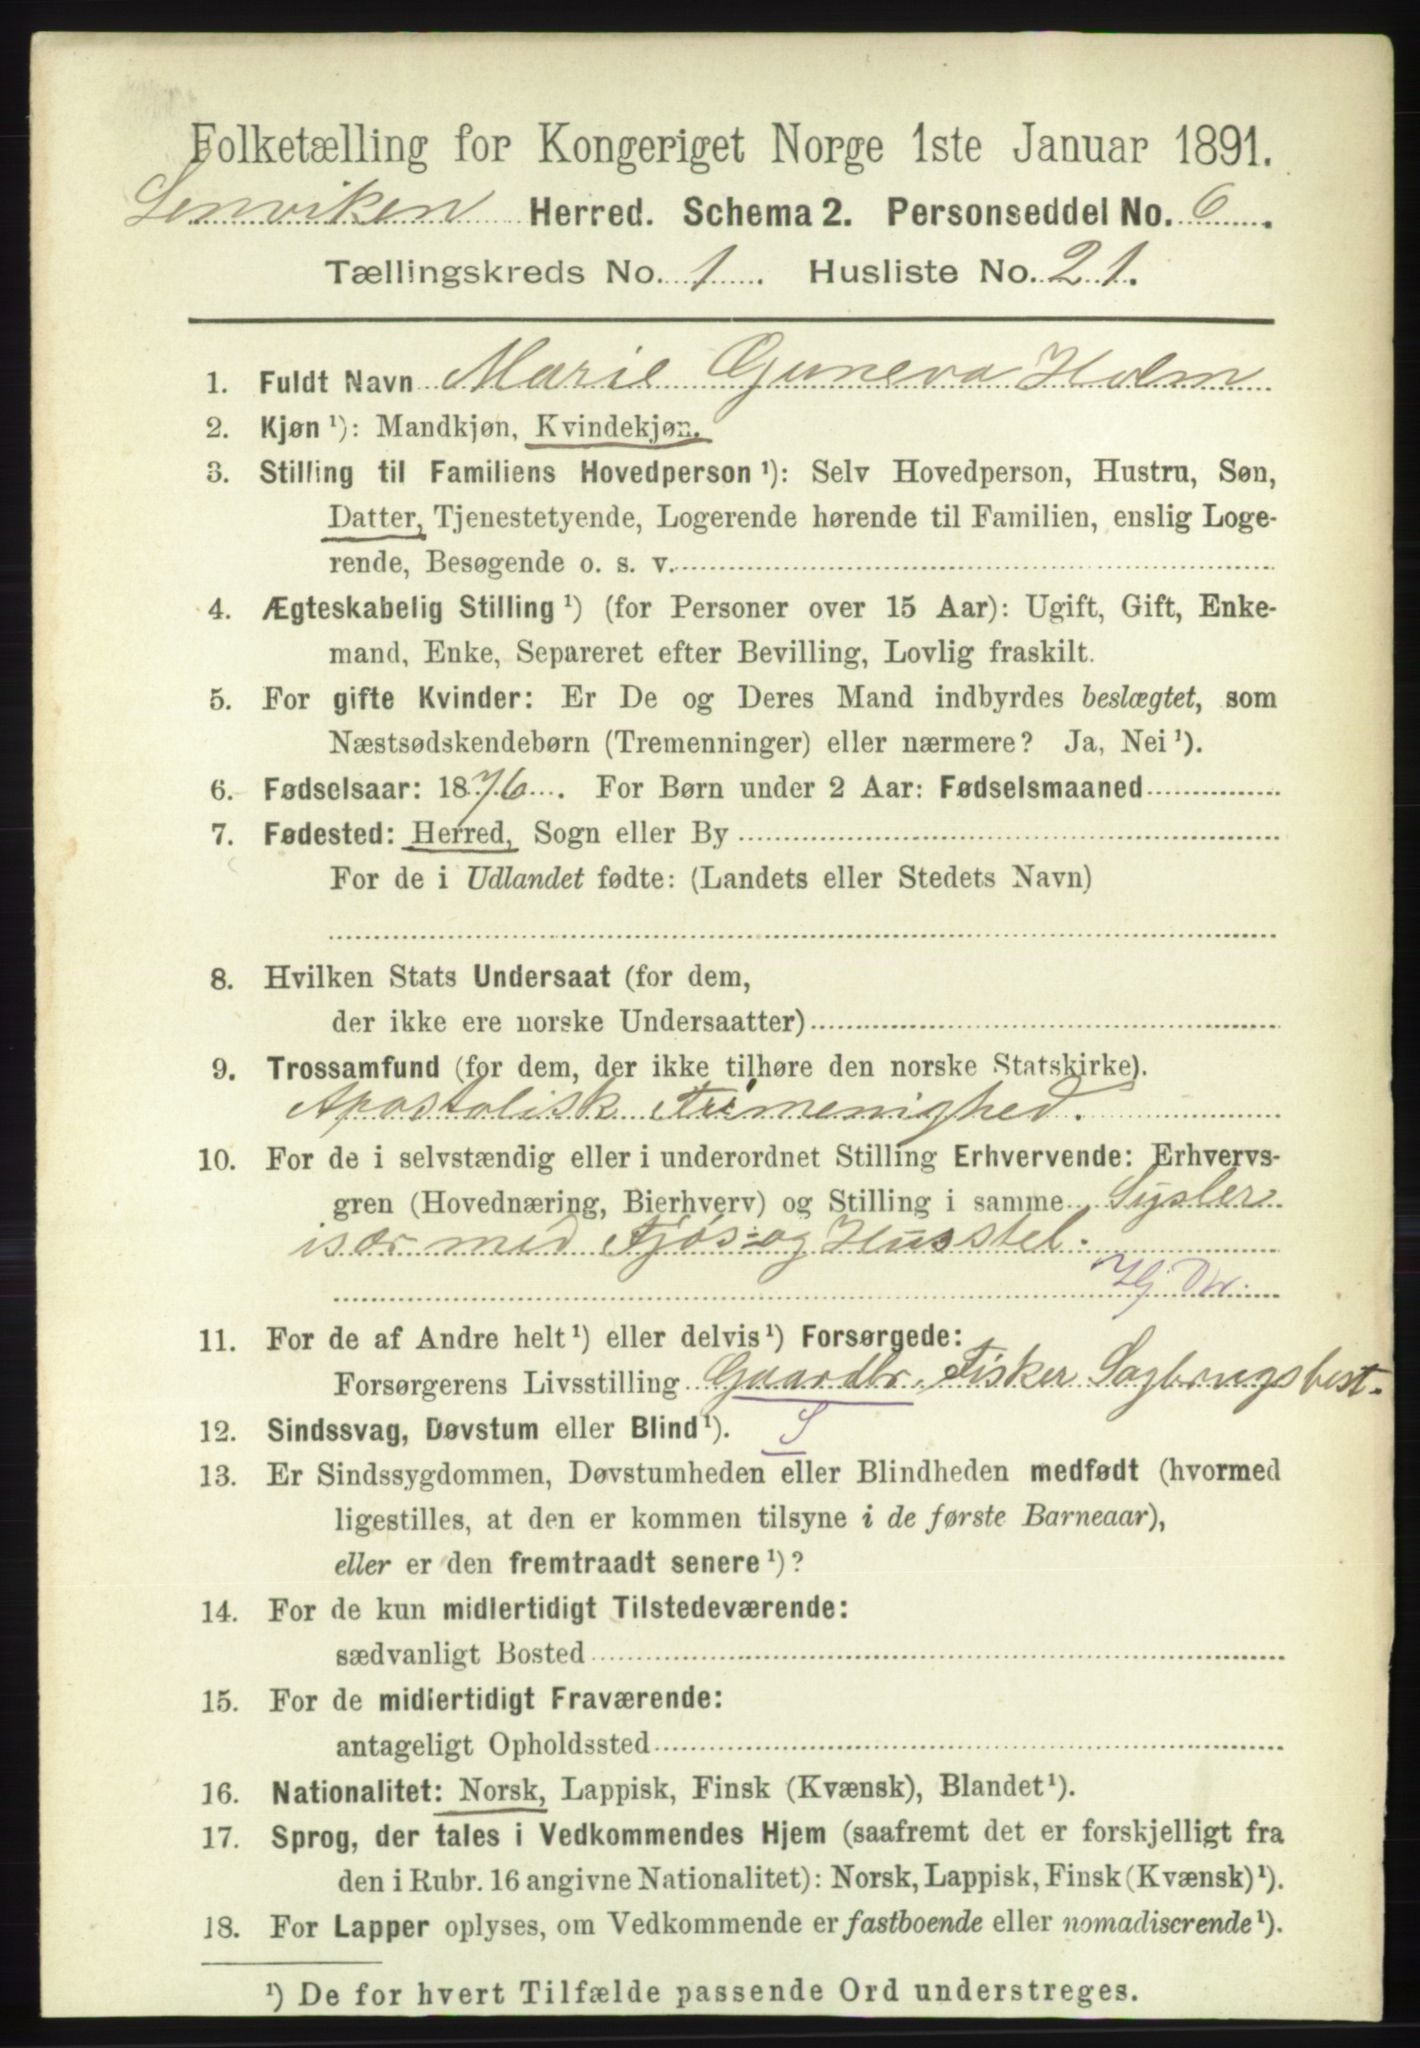 Folketælling for Kongeriget Norge 1ste Januar 1891.
Lenviken Herred. Schema 2. Personseddel No. 6.
Tællingskreds No. 1. Husliste No. 21.
1. Fuldt Navn Marie Guneva Holm
2. Kjøn ¹): Mandkjøn, Kvindekjøn.
3. Stilling til Familiens Hovedperson ¹): Selv Hovedperson, Hustru, Søn,
Datter, Tjenestetyende, Logerende hørende til Familien, enslig Loge-
rende, Besøgende o. s. v.
4. Ægteskabelig Stilling ¹) (for Personer over 15 Aar): Ugift, Gift, Enke-
mand, Enke, Separeret efter Bevilling, Lovlig fraskilt.
5. For gifte Kvinder: Er De og Deres Mand indbyrdes beslægtet, som
Næstsødskendebørn (Tremenninger) eller nærmere? Ja, Nei ¹).
6. Fødselsaar: 1876. For Børn under 2 Aar: Fødselsmaaned
7. Fødested: Herred, Sogn eller By
For de i Udlandet fødte: (Landets eller Stedets Navn)
8. Hvilken Stats Undersaat (for dem,
der ikke ere norske Undersaatter)
9. Trossamfund (for dem, der ikke tilhøre den norske Statskirke).
Apostolisk Frimenighed.
10. For de i selvstændig eller i underordnet Stilling Erhvervende: Erhvervs-
gren (Hovednæring, Bierhverv) og Stilling i samme Sysler
især med Fjøs- og Husstel.
11. For de af Andre helt ¹) eller delvis ¹) Forsørgede:
Forsørgerens Livsstilling Gaardbr. Fisker Sagbrugsbest.
12. Sindssvag, Døvstum eller Blind ¹). S
13. Er Sindssygdommen, Døvstumheden eller Blindheden medfødt (hvormed
ligestilles, at den er kommen tilsyne i de første Barneaar),
eller er den fremtraadt senere ¹)?
14. For de kun midlertidigt Tilstedeværende:
sædvanligt Bosted
15. For de midlertidigt Fraværende:
antageligt Opholdssted
16. Nationalitet: Norsk, Lappisk, Finsk (Kvænsk), Blandet ¹).
17. Sprog, der tales i Vedkommendes Hjem (saafremt det er forskjelligt fra
den i Rubr. 16 angivne Nationalitet): Norsk, Lappisk, Finsk (Kvænsk) ¹).
18. For Lapper oplyses, om Vedkommende er fastboende eller nomadiserende ¹).
¹) De for hvert Tilfælde passende Ord understreges.